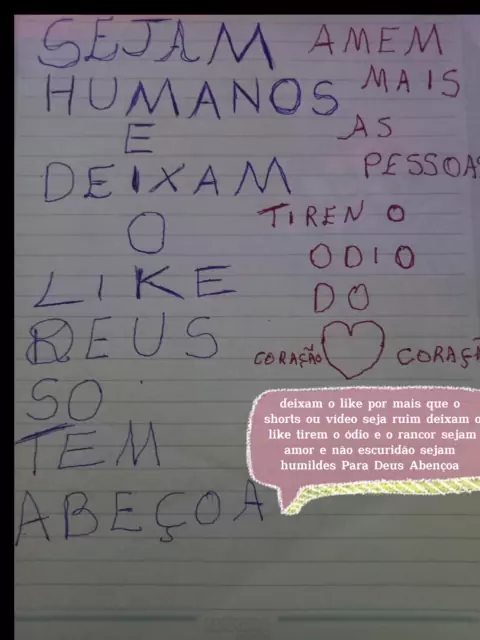 SEJAM
HUMANOS
E
DEIXAM
O
LIKE
DEUS
SO
TEM
ABEÇOA
AMEM
MAIS
AS
PESSOAS
TIREN O
ODIO
DO
CORAÇÃO
CORAÇÃ
deixam o like por mais que o
shorts ou vídeo seja ruim deixam o
like tirem o ódio e o rancor sejam
amor e não escuridão sejam
humildes Para Deus Abençoa